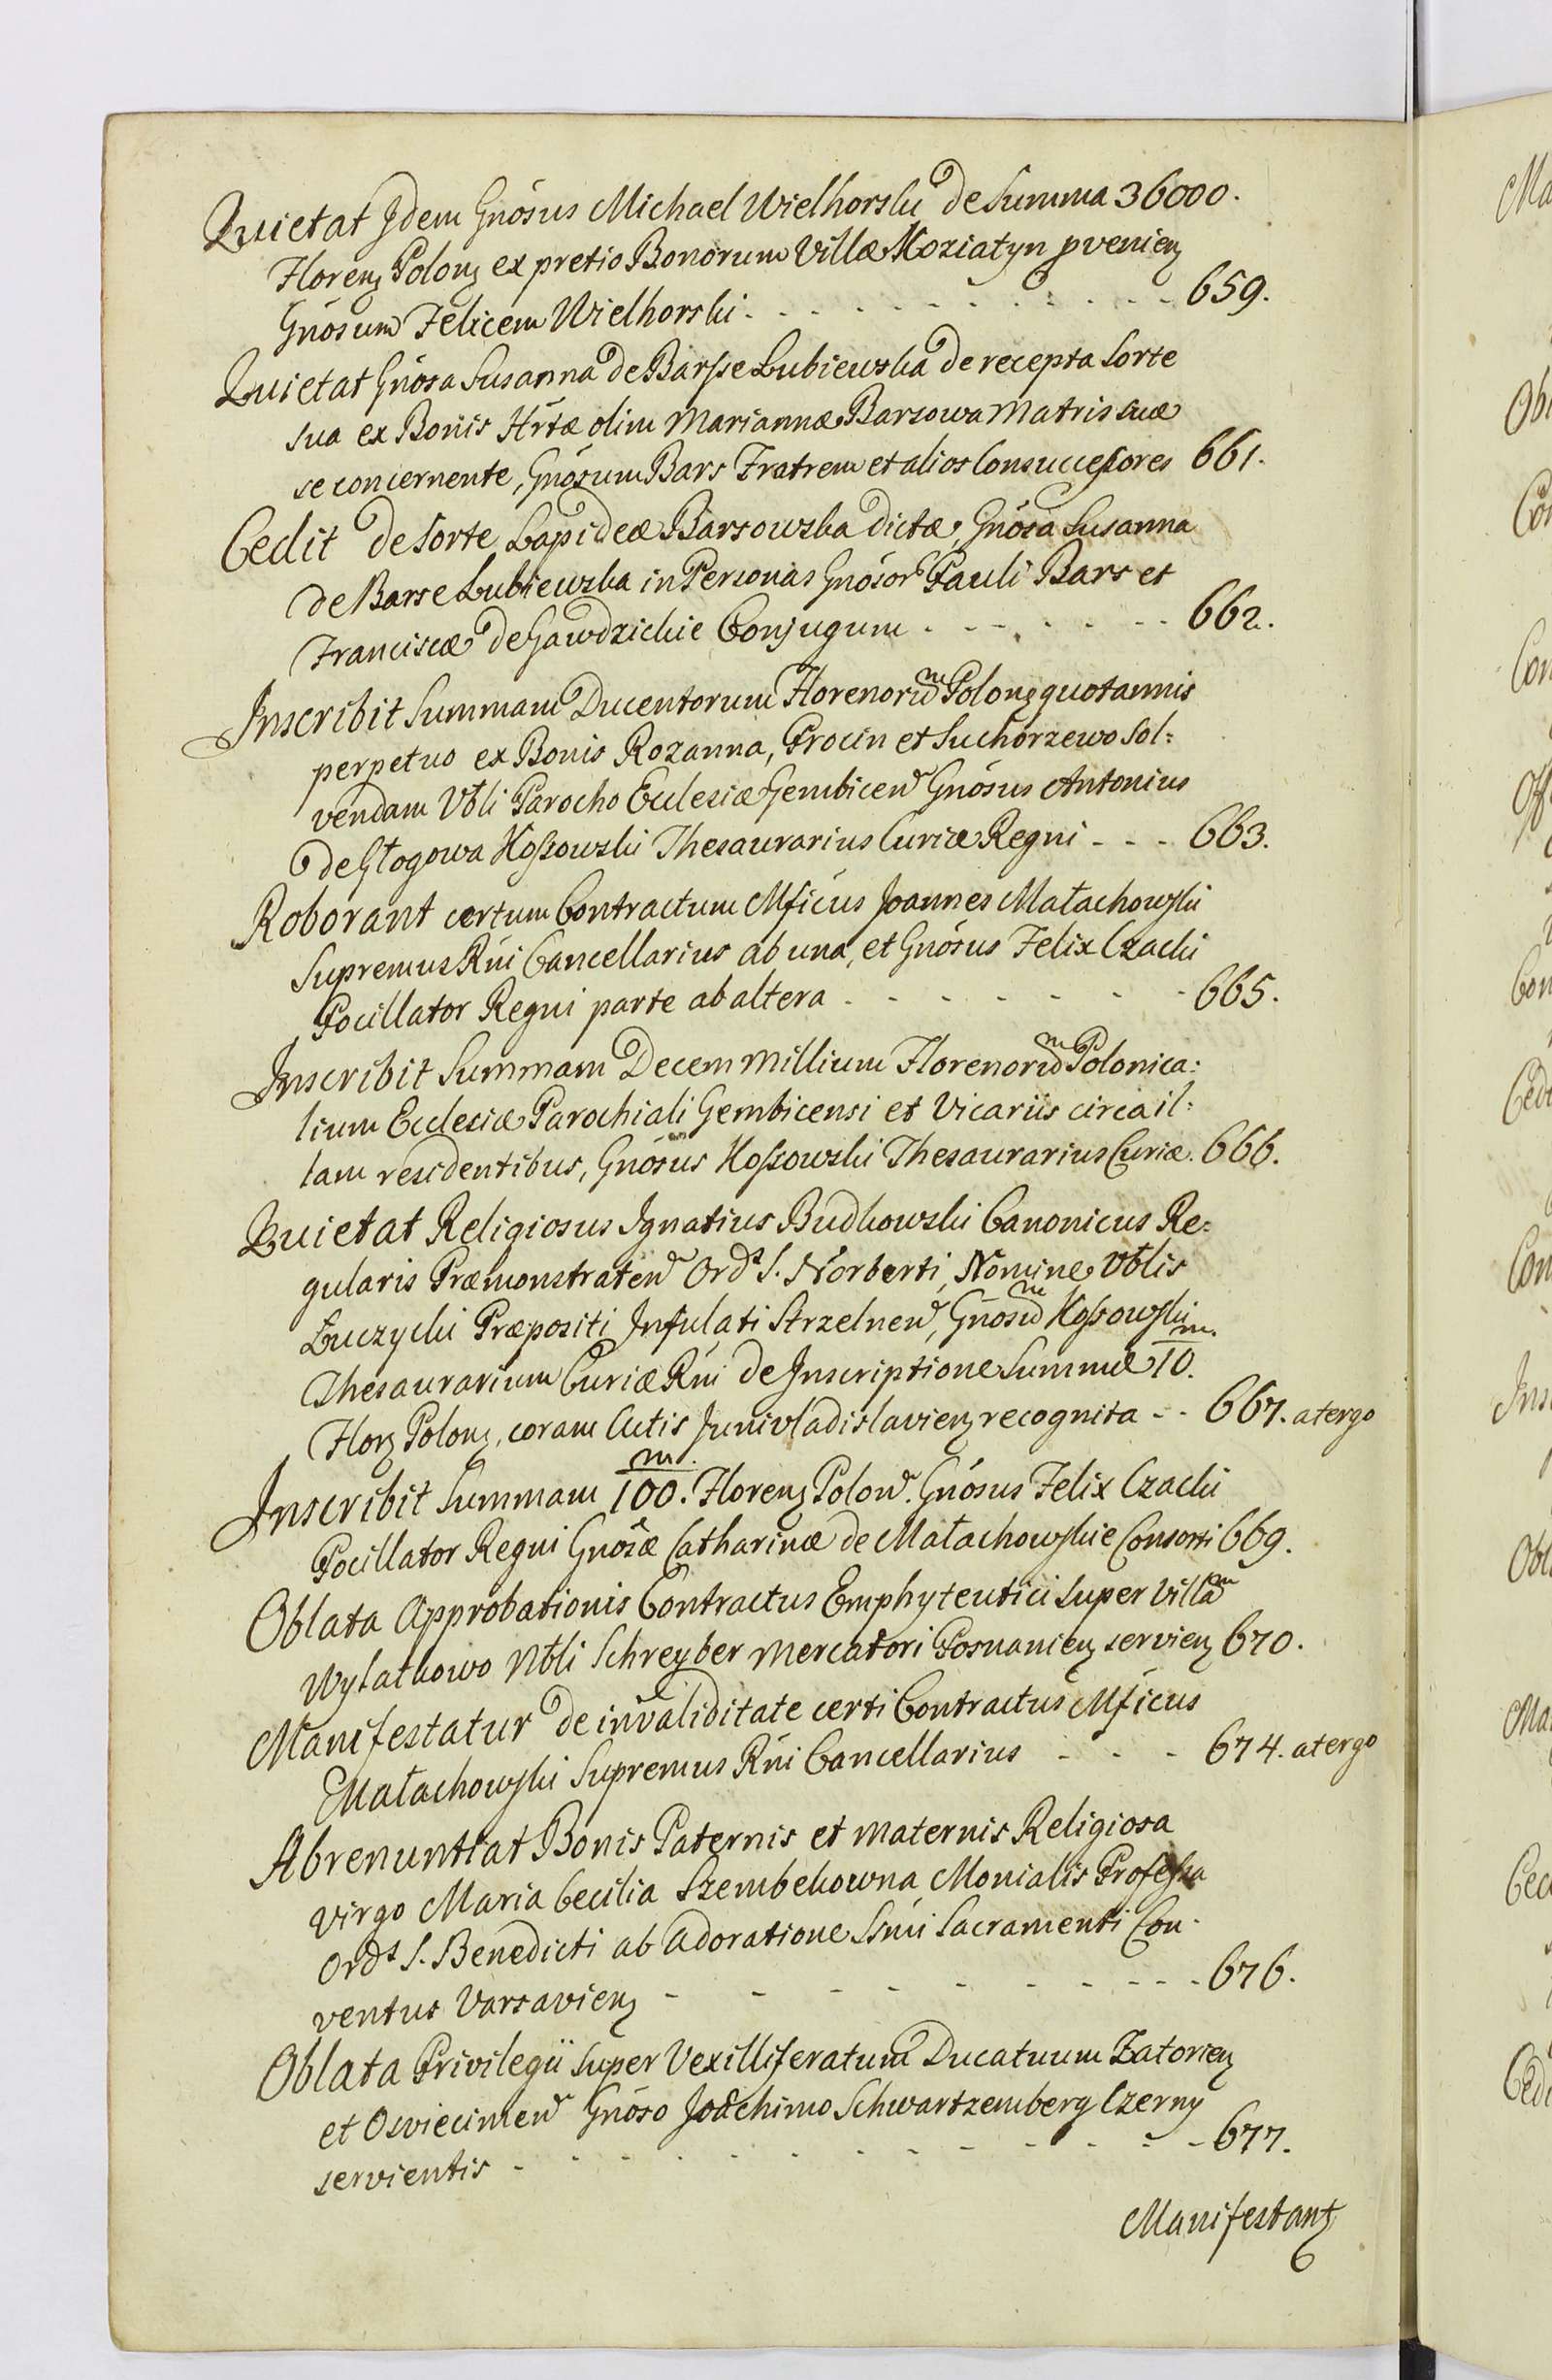 Quietat Jdem Gnósus Michael Wielhorski de Summa 36000.
Florenʒ Polonʒ ex pretio Bonorum Villæ Koziatyn pvenienʒ
Gnósum Felicem Wielhorski - - - - - - - - 659.
Quietat Gnósa Susanna de Barsse Lubiewska de recepta Sorte
sua ex Bonis Hrtæ olim Mariannæ Barsowa Matris suæ
se concernente, Gnósum Bars Fratrem et alios Consuccessores 661.
Cedit de Sorte Lapideæ Barsowska dictæ, Gnósa Susanna
de Barse Lubiewska in Personas Gnósor Pauli Bars et
Franciscæ de Gawdzickie Conjugum - - - - - - 662.
Inscribit Summam Ducentorum Florenorum Polonʒ quotannis
perpetuo ex Bonis Rozanna, Procin et Suchorzewo sol=
vendam Vbli Parocho Ecclesiæ Gembicen Gnósus Antonius
de Głogowa Kossowski Thesaurarius Curiæ Regni - - - 663.
Roborant certum Contractum Mficus Joannes Małachowski
Supremus Rni Cancellarius ab una, et Gnósus Felix Czacki
Pocillator Regni parte ab altera - - - - - - - 665.
Inscribit Summam Decem Millium Florenorum Polonica=
lium Ecclesiæ Parochiali Gembicensi et Vicariis circa il=
lam residentibus, Gnósus Kossowski Thesaurarius Curiæ. 666.
Quietat Religiosus Ignatius Budkowski Canonicus Re=
gularis Præmonstraten Ords S. Norberti, Nomine Vblis
Łuczycki Præpositi Infulati Strzelnen, Gnósum Kossowski
Thesaurarium Curiæ Rni de Inscriptione Summæ 10. m.
Florʒ Polonʒ, coram Actis Junivladislavienʒ recognita - - 667. a tergo
Inscribit Summam 100. m. Florenʒ Polon. Gnósus Felix Czacki
Pocillator Regni Gnósæ Catharinæ de Małachowskie Consorti 669.
Oblata Approbationis Contractus Emphyteutici super Villam
Wylatkowo Nbli Schreyber Mercatori Posnanienʒ servienʒ 670.
Manifestatur de invaliditate certi Contractus Mficus
Małachowski Supremus Rni Cancellarius - - - 674. a tergo
Abrenuntiat Bonis Paternis et Maternis Religiosa
Virgo Maria Cecilia Szembekowna Monialis Professa
Ords S. Benedicti ab Adoratione Ssmi Sacramenti Con=
ventus Varsavienʒ - - - - - - - - 676.
Oblata Privilegii super Vexilliferatum Ducatuum Zatorienʒ
et Osviecimen Gnóso Joachimo Schwartzemberg Czerny
servientis - - - - - - - - - - 677.
Manifestantʒ